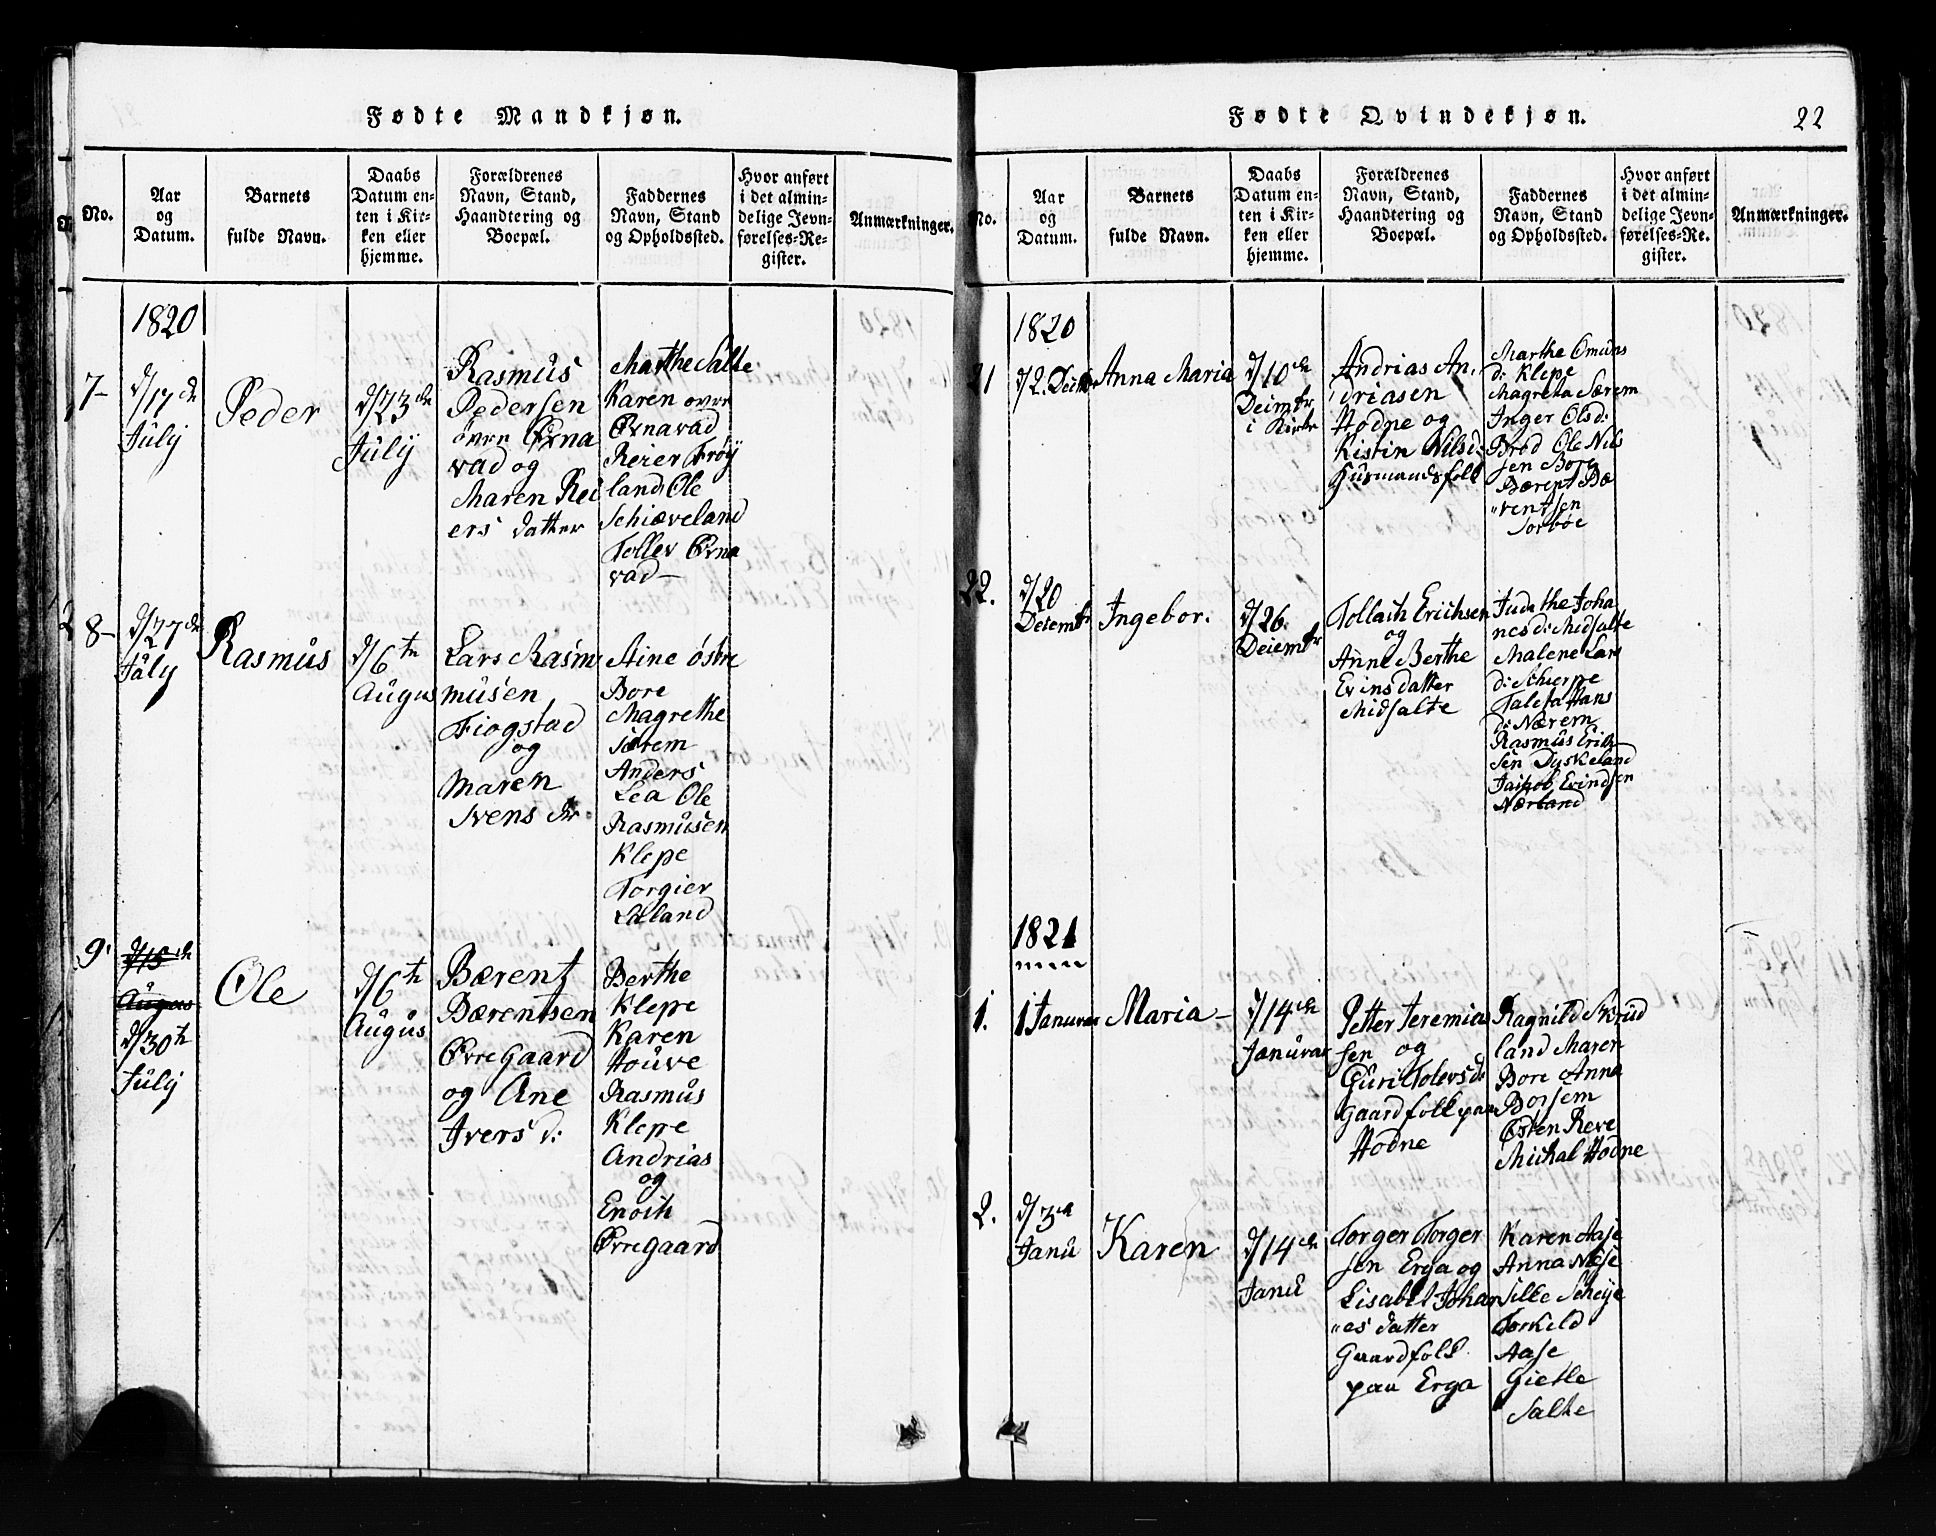 Fødte Mandkjøn.
No.
Aar
og
Datum.
Barnets
fulde Navn.
Daabs
Datum en-
ten i Kir-
ken eller
hjemme.
Forældrenes
Navn, Stand,
Haandtering og
Boepæl.
Faddernes
Navn, Stand
og Opholdssted.
Hvor anført
i det almin-
delige Jevn-
førelses-Re-
gister.
Anmærkninger.
1820
7-
d/17de
Julij
Peder
d/23de
Julij
Rasmus
Pedersen
øvre Ørna
vad og
Maren Rei
ers datter
Marthe Salte
Karen øvre
Ørnavad
Reier Frøÿ
land Ole
Schiæveland
Tollev Ørna
vad-
8-
d/27de
Julij
Rasmus
d/6te
Augus
Lars Rasm
musen
Fiogstad
og
Maren
Ivens dr.
Stine østre
Bore
Magrethe
særem
Anders
Lea Ole
Rasmusen
Klepe
Torgier
Laland
9.
d/15de
Augus
d/30te
Julij
Ole
d/6te
Augus
Bærent
Bærentsen
Øvregaard
og Ane
Ivers d:
Berthe
Klepe
Karen
Houve
Rasmus
Klepe
Andrias
og
Enoch
Øvregaard
Fødte Qvindekjøn.
22
No.
Aar
og
Datum.
Barnets
fulde Navn.
Daabs
Datum en-
ten i Kir-
ken eller
hjemme.
Forældrenes
Navn, Stand,
Haandtering og
Boepæl.
Faddernes
Navn, Stand
og Opholdssted.
Hvor anført
i det almin-
delige Jevn-
førelses-Re-
gister.
Anmærkninger.
1820
21
d/2. Decbr
Anna Maria
d/10de
Decmbr
i Kirke
Andrias An,
driasen
Hodne og
Kistin Nilsd:
Husmandsfolk
Marthe Omuns
d: Klepe
Magreta Særem
Inger Olsd:
Brod Ole Nils
sen Bore
Bærent Bæ
"rentsen
Sorbøe
22.
d/20
Decembr
Ingebor.
d/26.
Decembr
Tollach Erichsen
og
Anne Berthe
Evinsdatter
Midsalte
Judithe Joha
nesd: Midsalte
Malene Lars
d: Schierpe
Taleta Hans
d: Nærem
Rasmus Erik
sen Dyskeland
Jacob Evindsen
Nærland
1821
1.
1 Januvar
Maria-
d/14de
Januvar
Petter Jeremia
sen og
Guri Tolevsd:
gaardfolk paa
Hodne
Ragnild Skrud
land Maren
Bore Anna
Borsem
Østen Reve
Michal Hodne
2.
d/3de
Janu
Karen
d/14de
Janu
Torger Torger
sen Erga og
Lisabet Johan
"es datter
Gaardfolk
paa Erga
Karen Aase
Anna Næse
Sille Scheije
Torkild
Aase
Gietle
Salte